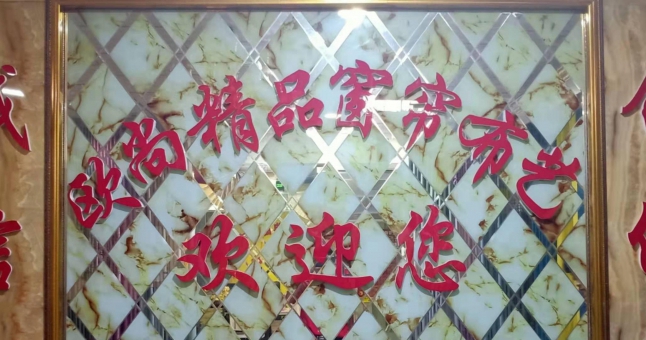 欧尚精品窗帘布艺
欢迎您
诚信